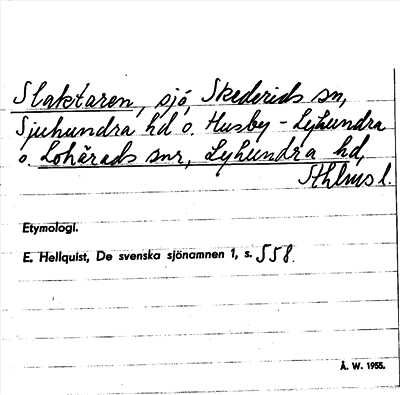 Slaktaren, sjö, Skederids sn,
Sjuhundra hd o. Husby-Lyhundra
o. Lohärads snr, Lyhundra hd,
Sthlms l.
Etymologi.
E. Hellquist, De svenska sjönamnen 1, s. 558.
Å. W. 1955.